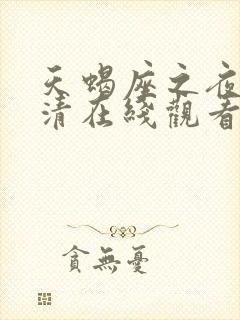 天蝎座之夜
清在綫觀看
貪無憂